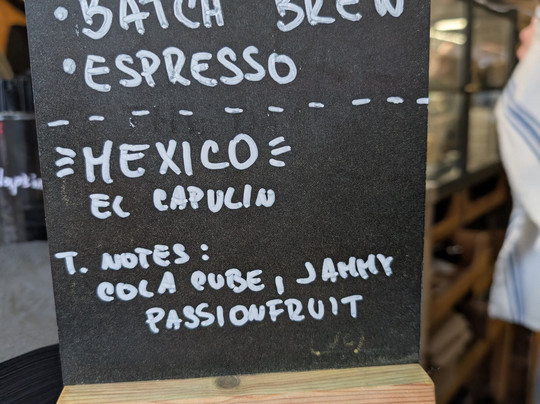 • BATCH BREW
• ESPRESSO
MEXICO
EL CAPULIN
T. NOTES:
COLA CUBE, JAMMY
PASSIONFRUIT